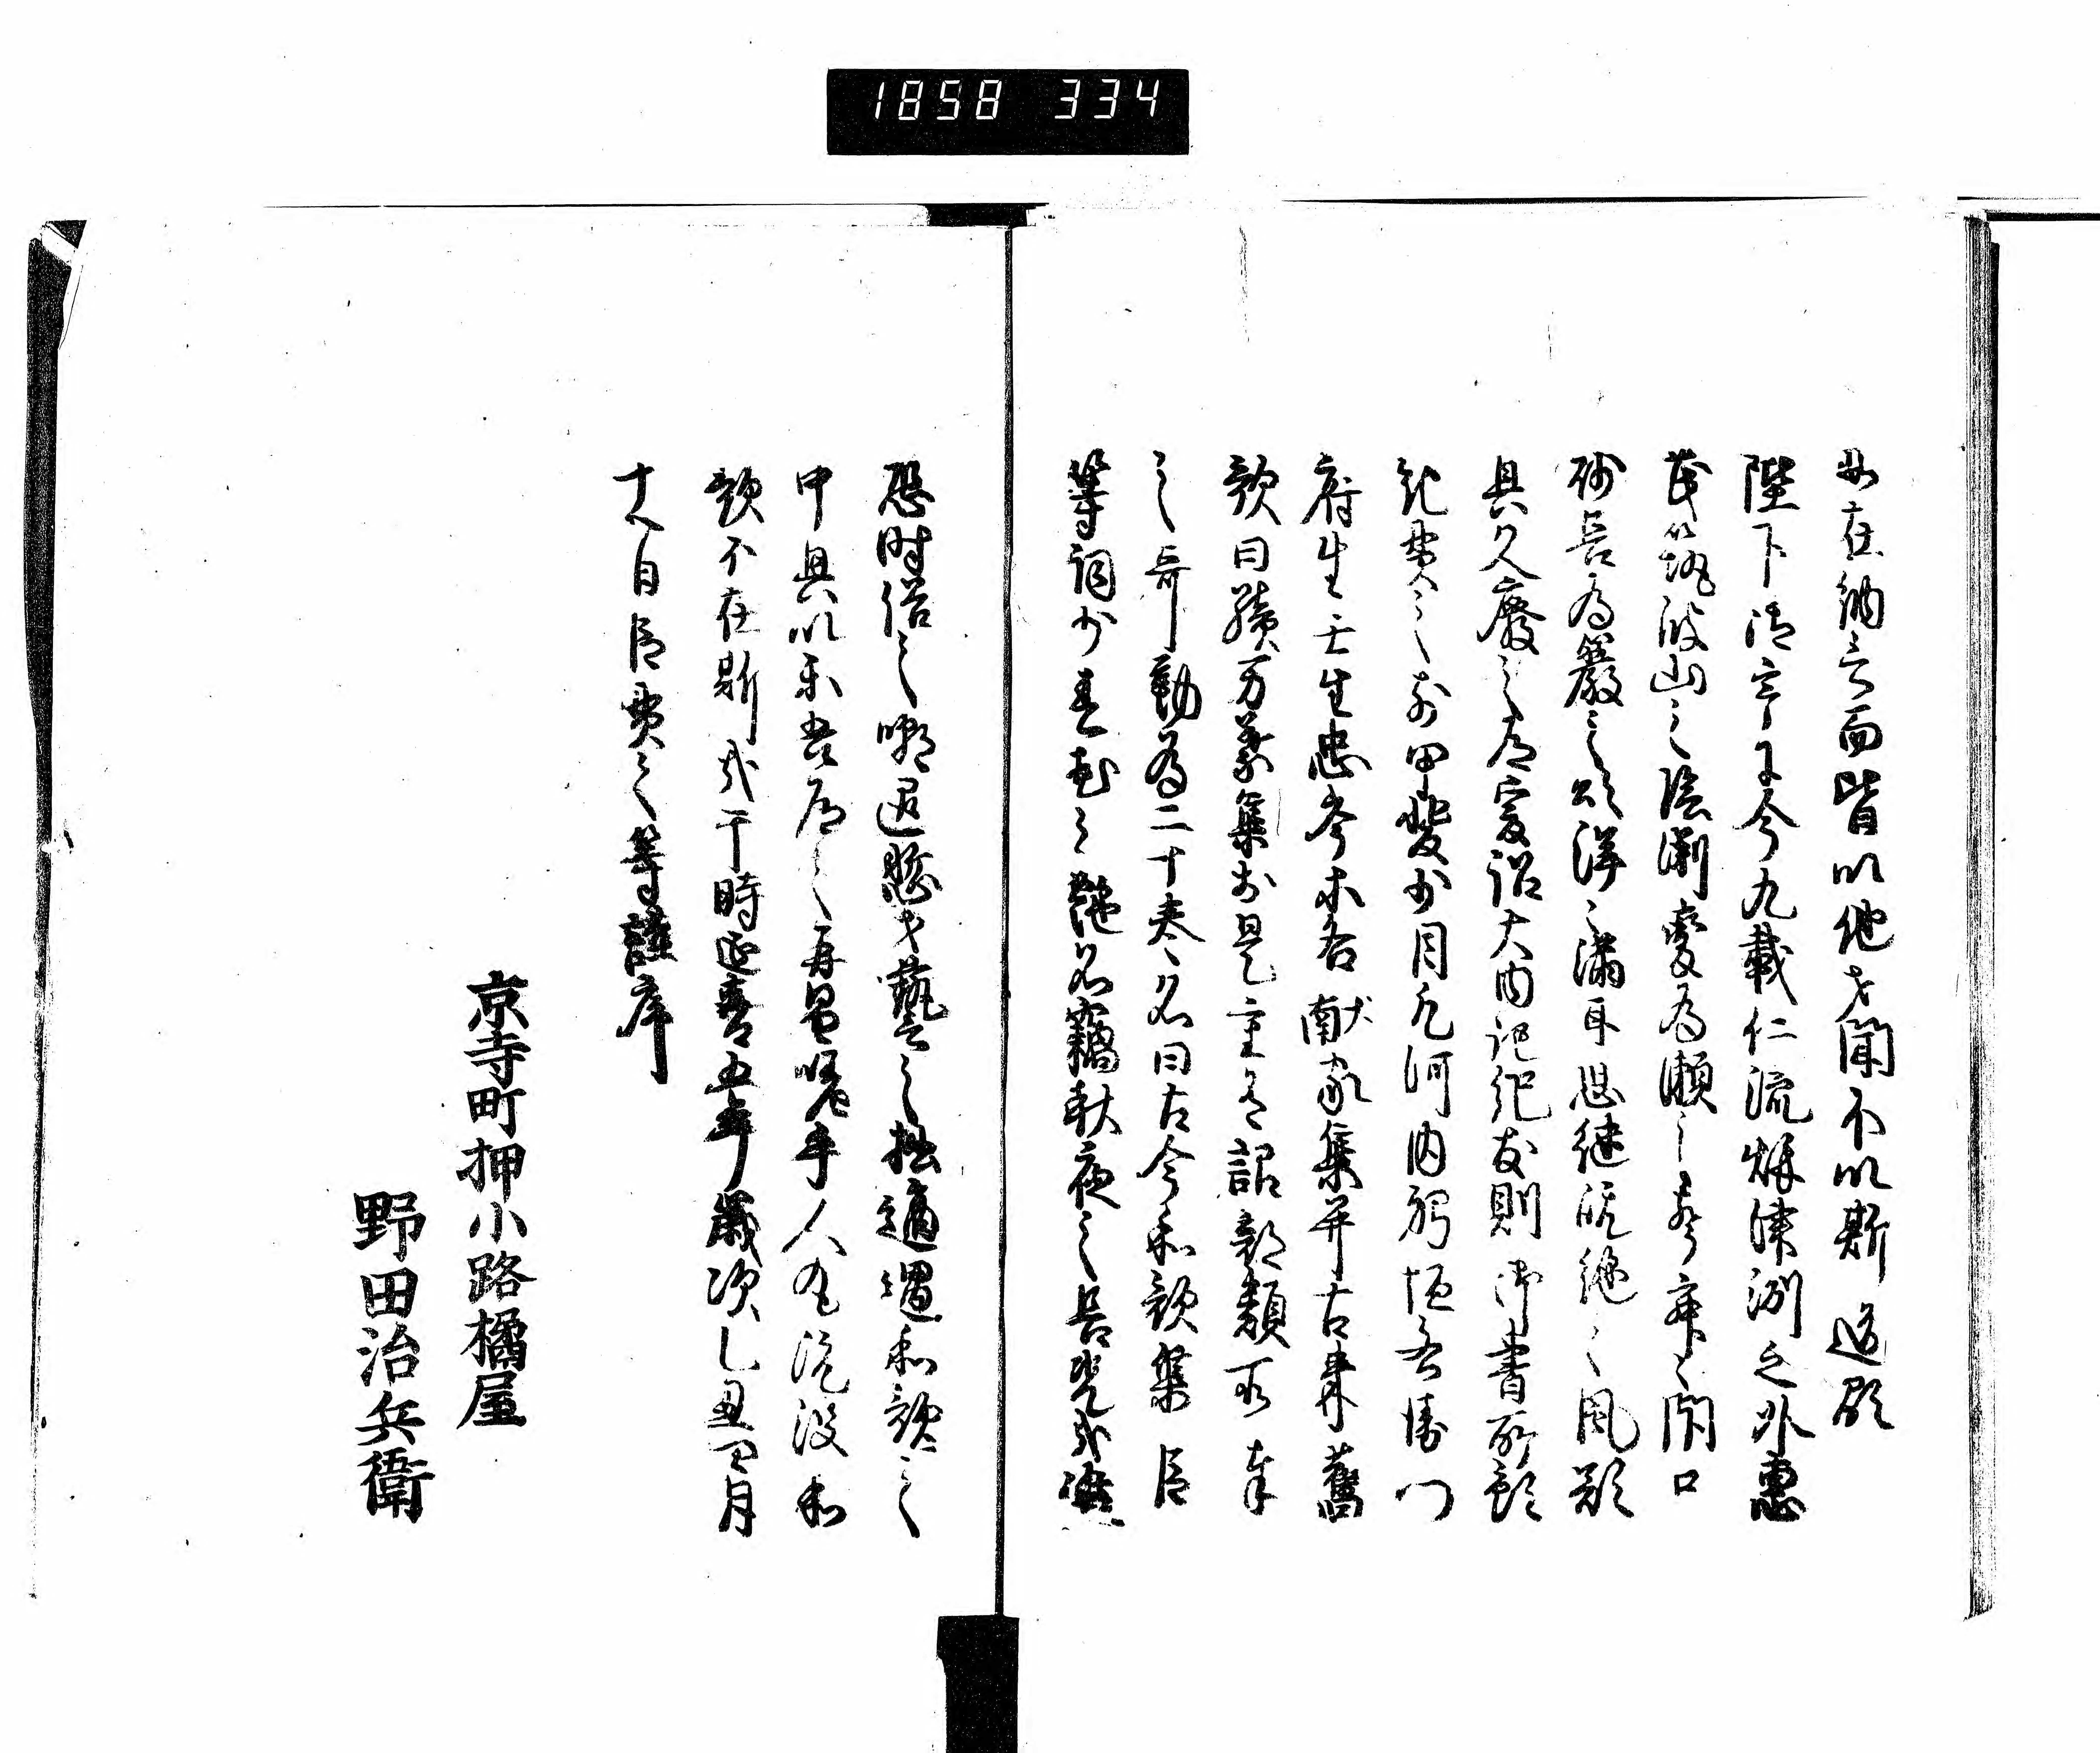 如在納言而皆以他才聞不以斯道顕
陛下御宇于今九載仁流秋津洲之外恵
茂筑波山之陰渕変為瀬之声寂々閉口
砂長為巌之頌洋々満耳思継既絶之風欲
興久廃之道爰詔大内記紀友則御書所預
紀貫之前甲斐少目凡河内躬恒右衛門
府生壬生忠岑等各献家集并古来舊
歌曰続万葉集於是重有詔部類所奉
之哥勒為二十巻名曰古今和歌集臣
等詞少春花之艶名竊秋夜之長况乎進
恐時俗之嘲退慙才藝之拙適遇和歌之
中興以楽吾道之再昌嗟乎人丸既没和
歌不在斯哉于時延喜五年歳次乙丑四月
十八日臣貫之等謹序
京寺町押小路橘屋
野田治兵衛
1858 334